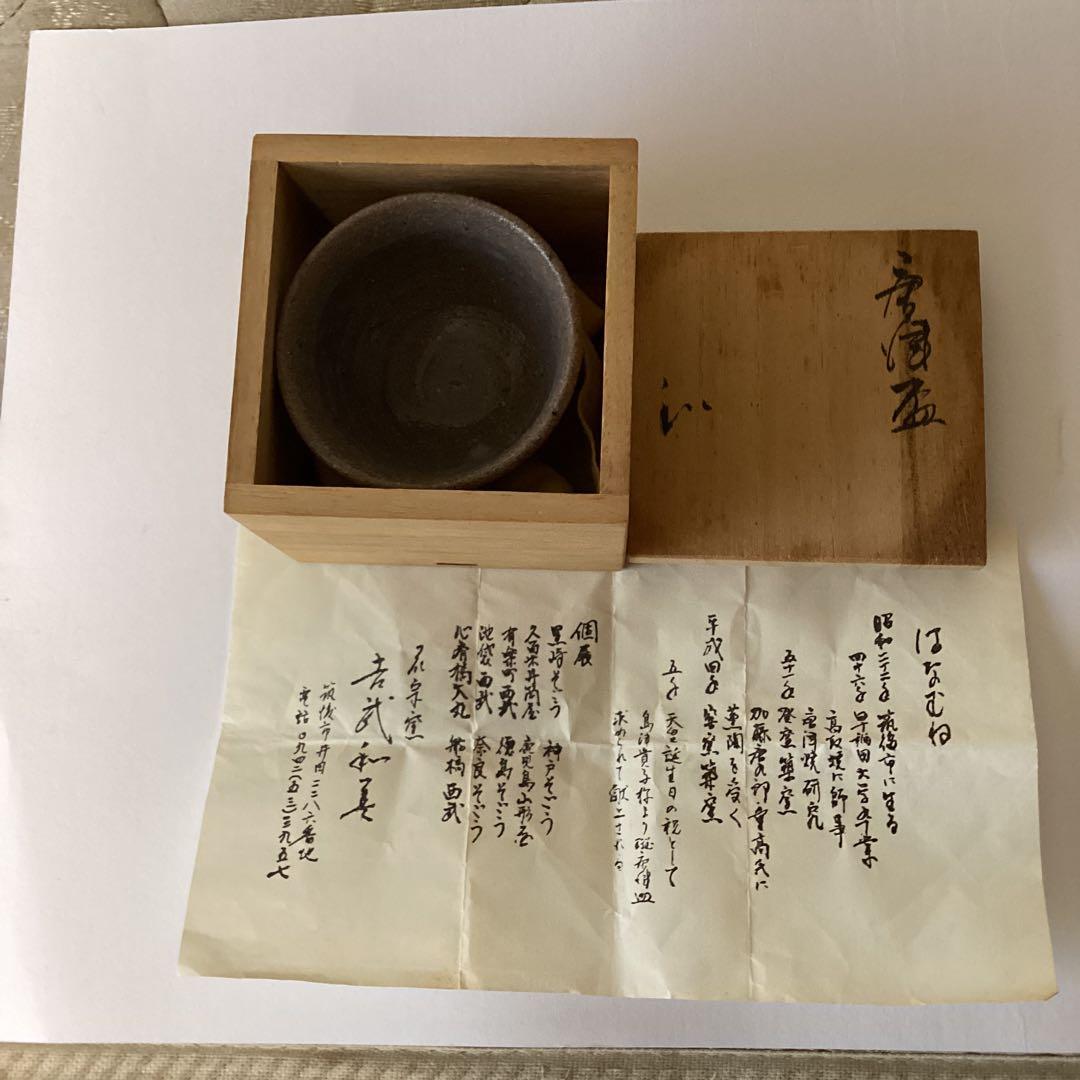 唐津盃
はなむね
昭和二十二年 筑後市に生る
四十六年 早稲田大学卒業
高取焼に師事
唐津焼研究
五十一年 登窯築窯
加藤唐九郎・重高氏に
薫陶を受く
平成四年 窖窯築窯
五年 天皇誕生日の祝として
島津貴子様より斑唐津皿
求められて献上される
個展
黒崎そごう 神戸そごう
久留米井筒屋 鹿児島山形屋
有楽町西武 徳島そごう
池袋西武 奈良そごう
心斎橋大丸 船橋西武
窯
吉武和美
筑後市井田一二八六番地
電話〇九四二(五三)三九五七